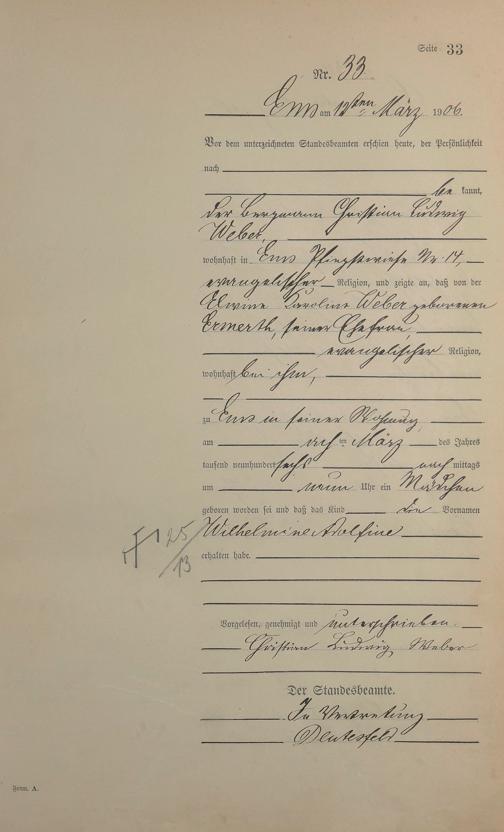 Seite 33
Nr. 33.
Ems am 12ten März 1906.
Vor dem unterzeichneten Standesbeamten erschien heute, der Persönlichkeit
nach
be kannt,
der Bergmann Christian Ludwig
Weber,
wohnhaft in Ems Pfingstwiese Nr. 14,
evangelischer Religion, und zeigte an, daß von der
Elwine Karoline Weber geborenen
Ermerth, seiner Ehefrau,
evangelischer Religion,
wohnhaft bei ihm,
zu Ems in seiner Wohnung
am acht ten März des Jahres
tausend neunhundert sechs nach mittags
um neun Uhr ein Mädchen
geboren worden sei und daß das Kind die Vornamen
Wilhelmine Adolfine
erhalten habe.
25/13
Vorgelesen, genehmigt und unterschrieben.
Christian Ludwig Weber
Der Standesbeamte.
In Vertretung
Form. A.